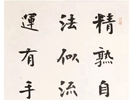 精熟自
法似流
運有手